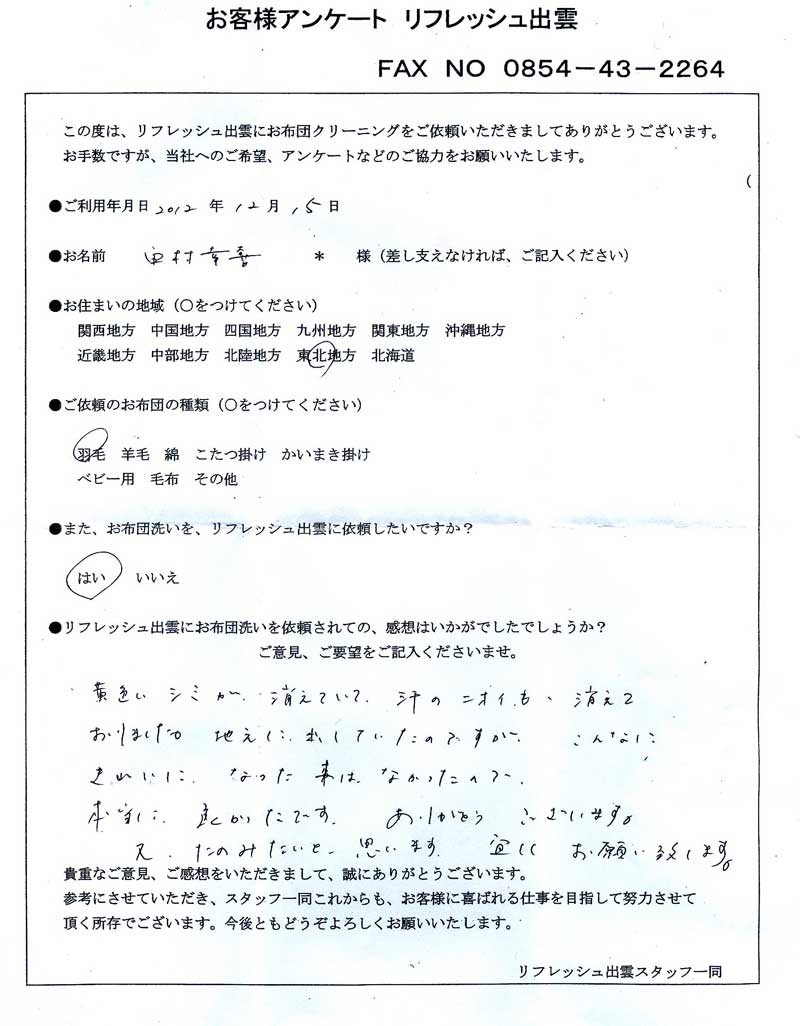 お客様アンケート リフレッシュ出雲
FAX NO 0854-43-2264
この度は、リフレッシュ出雲にお布団クリーニングをご依頼いただきましてありがとうございます。
お手数ですが、当社へのご希望、アンケートなどのご協力をお願いいたします。
●ご利用年月日 2012 年 12 月 15 日
●お名前 村 * 様(差し支えなければ、ご記入ください)
●お住まいの地域(〇をつけてください)
関西地方 中国地方 四国地方 九州地方 関東地方 沖縄地方
近畿地方 中部地方 北陸地方 東北地方 北海道
●ご依頼のお布団の種類(〇をつけてください)
羽毛 羊毛 綿 こたつ掛け かいまき掛け
ベビー用 毛布 その他
●また、お布団洗いを、リフレッシュ出雲に依頼したいですか?
はい いいえ
●リフレッシュ出雲にお布団洗いを依頼されての、感想はいかがでしたでしょうか?
ご意見、ご要望をご記入くださいませ。
黄色い シミが、消えていて、汗の ニオイも、消えて
おりました 地元に、出していたのですが、こんなに
きれいに、なった 事は、なかったので、
本当に、良かったです。 ありがとう ございます。
又、たのみたいと、思います 宜しく お願い致します。
貴重なご意見、ご感想をいただきまして、誠にありがとうございます。
参考にさせていただき、スタッフ一同これからも、お客様に喜ばれる仕事を目指して努力させて
頂く所存でございます。今後ともどうぞよろしくお願いいたします。
リフレッシュ出雲スタッフ一同